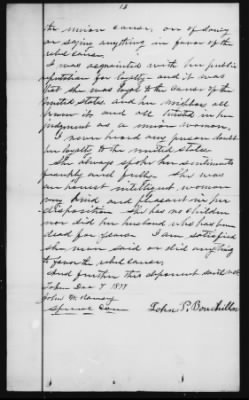 13
the union cause, or of doing
or saying anything in favor of the
rebel cause.
I was acquainted with her public
reputation for loyalty – and it was
that she was loyal to the cause of the
United States and her neighbors all
knew it and all trusted in her
judgment as a union woman.
I never heard any person doubt
her loyalty to the united states.
She always spoke her sentiments
frankly and freely. She was
an honest intelligent woman
very kind and pleasant in her
disposition. She has no children
nor did her husband who has been
dead for years. I am satisfied
she never said or did anything
to favor the rebel cause.
And further this deponent saith not
Taken Dec 7 1877
John M. Ramsey
Special Com John P. Bouchillon